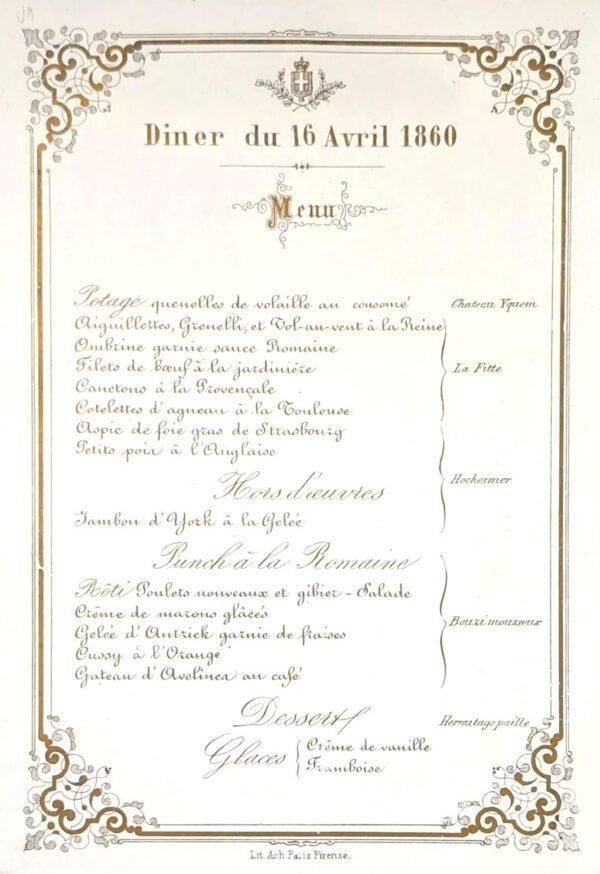 Diner du 16 Avril 1860
Menu
Potage quenelles de volaille au consomé
Chateau Yquem
Aiguillettes, Grenelli, et Vol-au-vent à la Reine
Ombrine garnie sauce Romaine
Filets de bœuf à la jardinière
La Fitte
Canetons à la Provençale
Cotelettes d'agneau à la Toulouse
Aspic de foie gras de Strasbourg
Petits poix à l'Anglaise
Hors d'œuvres
Hocheimer
Jambon d'York à la Gelée
Punch à la Romaine
Rôti Poulets nouveaux et gibier - Salade
Crême de marons glâcés
Gelée d'Antrick garnie de fraises
Bouzi mousseux
Cussy à l'Orange
Gateau d'Avelinea au café
Dessert
Hermitage paille
Glaces
Crême de vanille
Framboise
Lit. Ach. Paris Firenze.